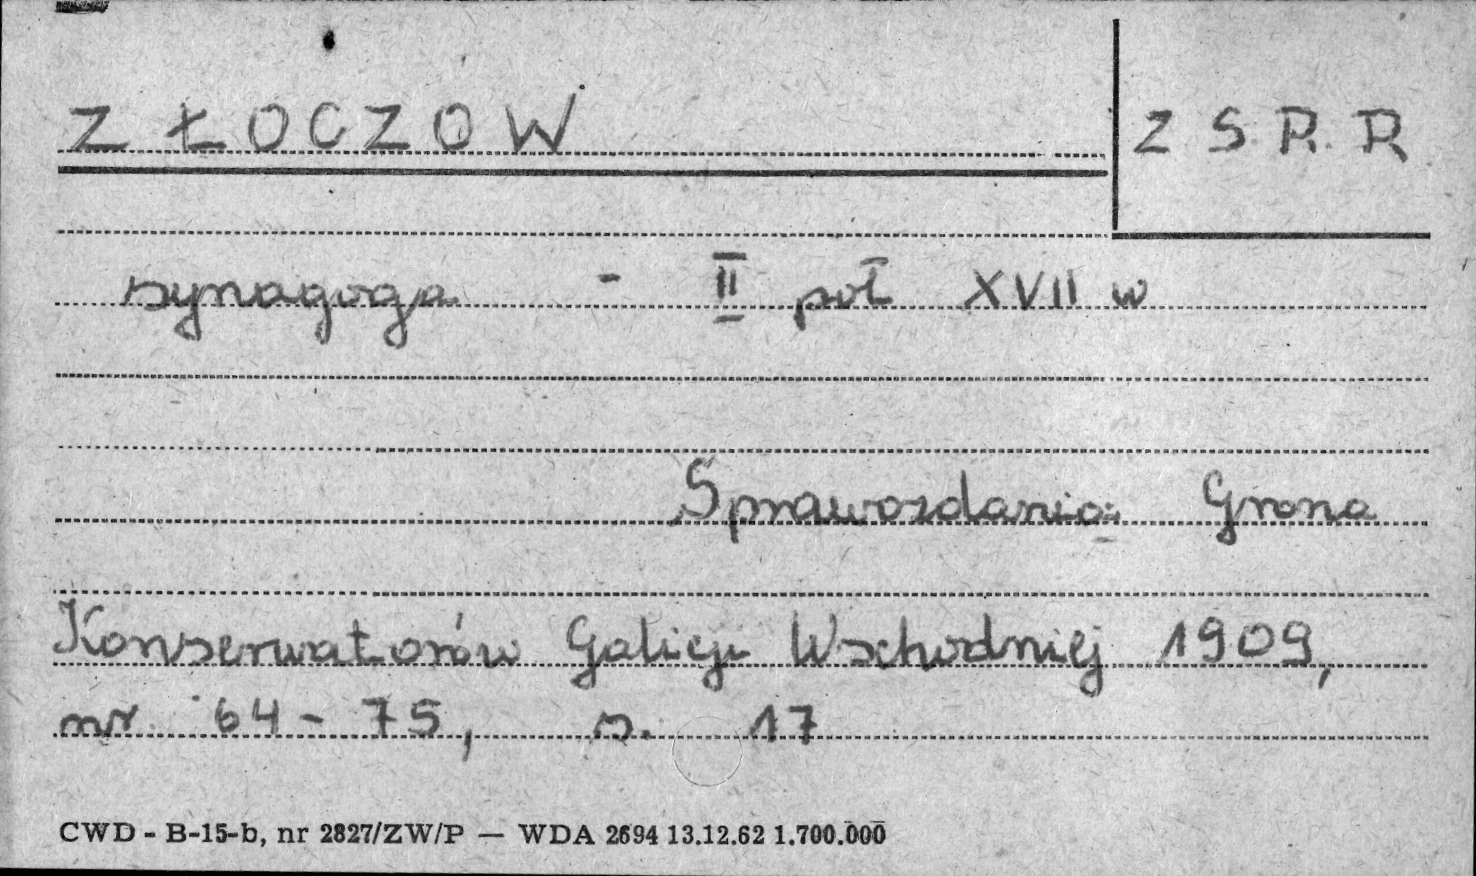 ZŁOCZOW
ZSRR
synagoga - II poł XVII w
Sprawozdania Grona
Konserwatorów Galicji Wschodniej 1909,
nr 64-75, s. 17
CWD - B-15-b, nr 2827/ZW/P — WDA 2694 13.12.62 1.700.000